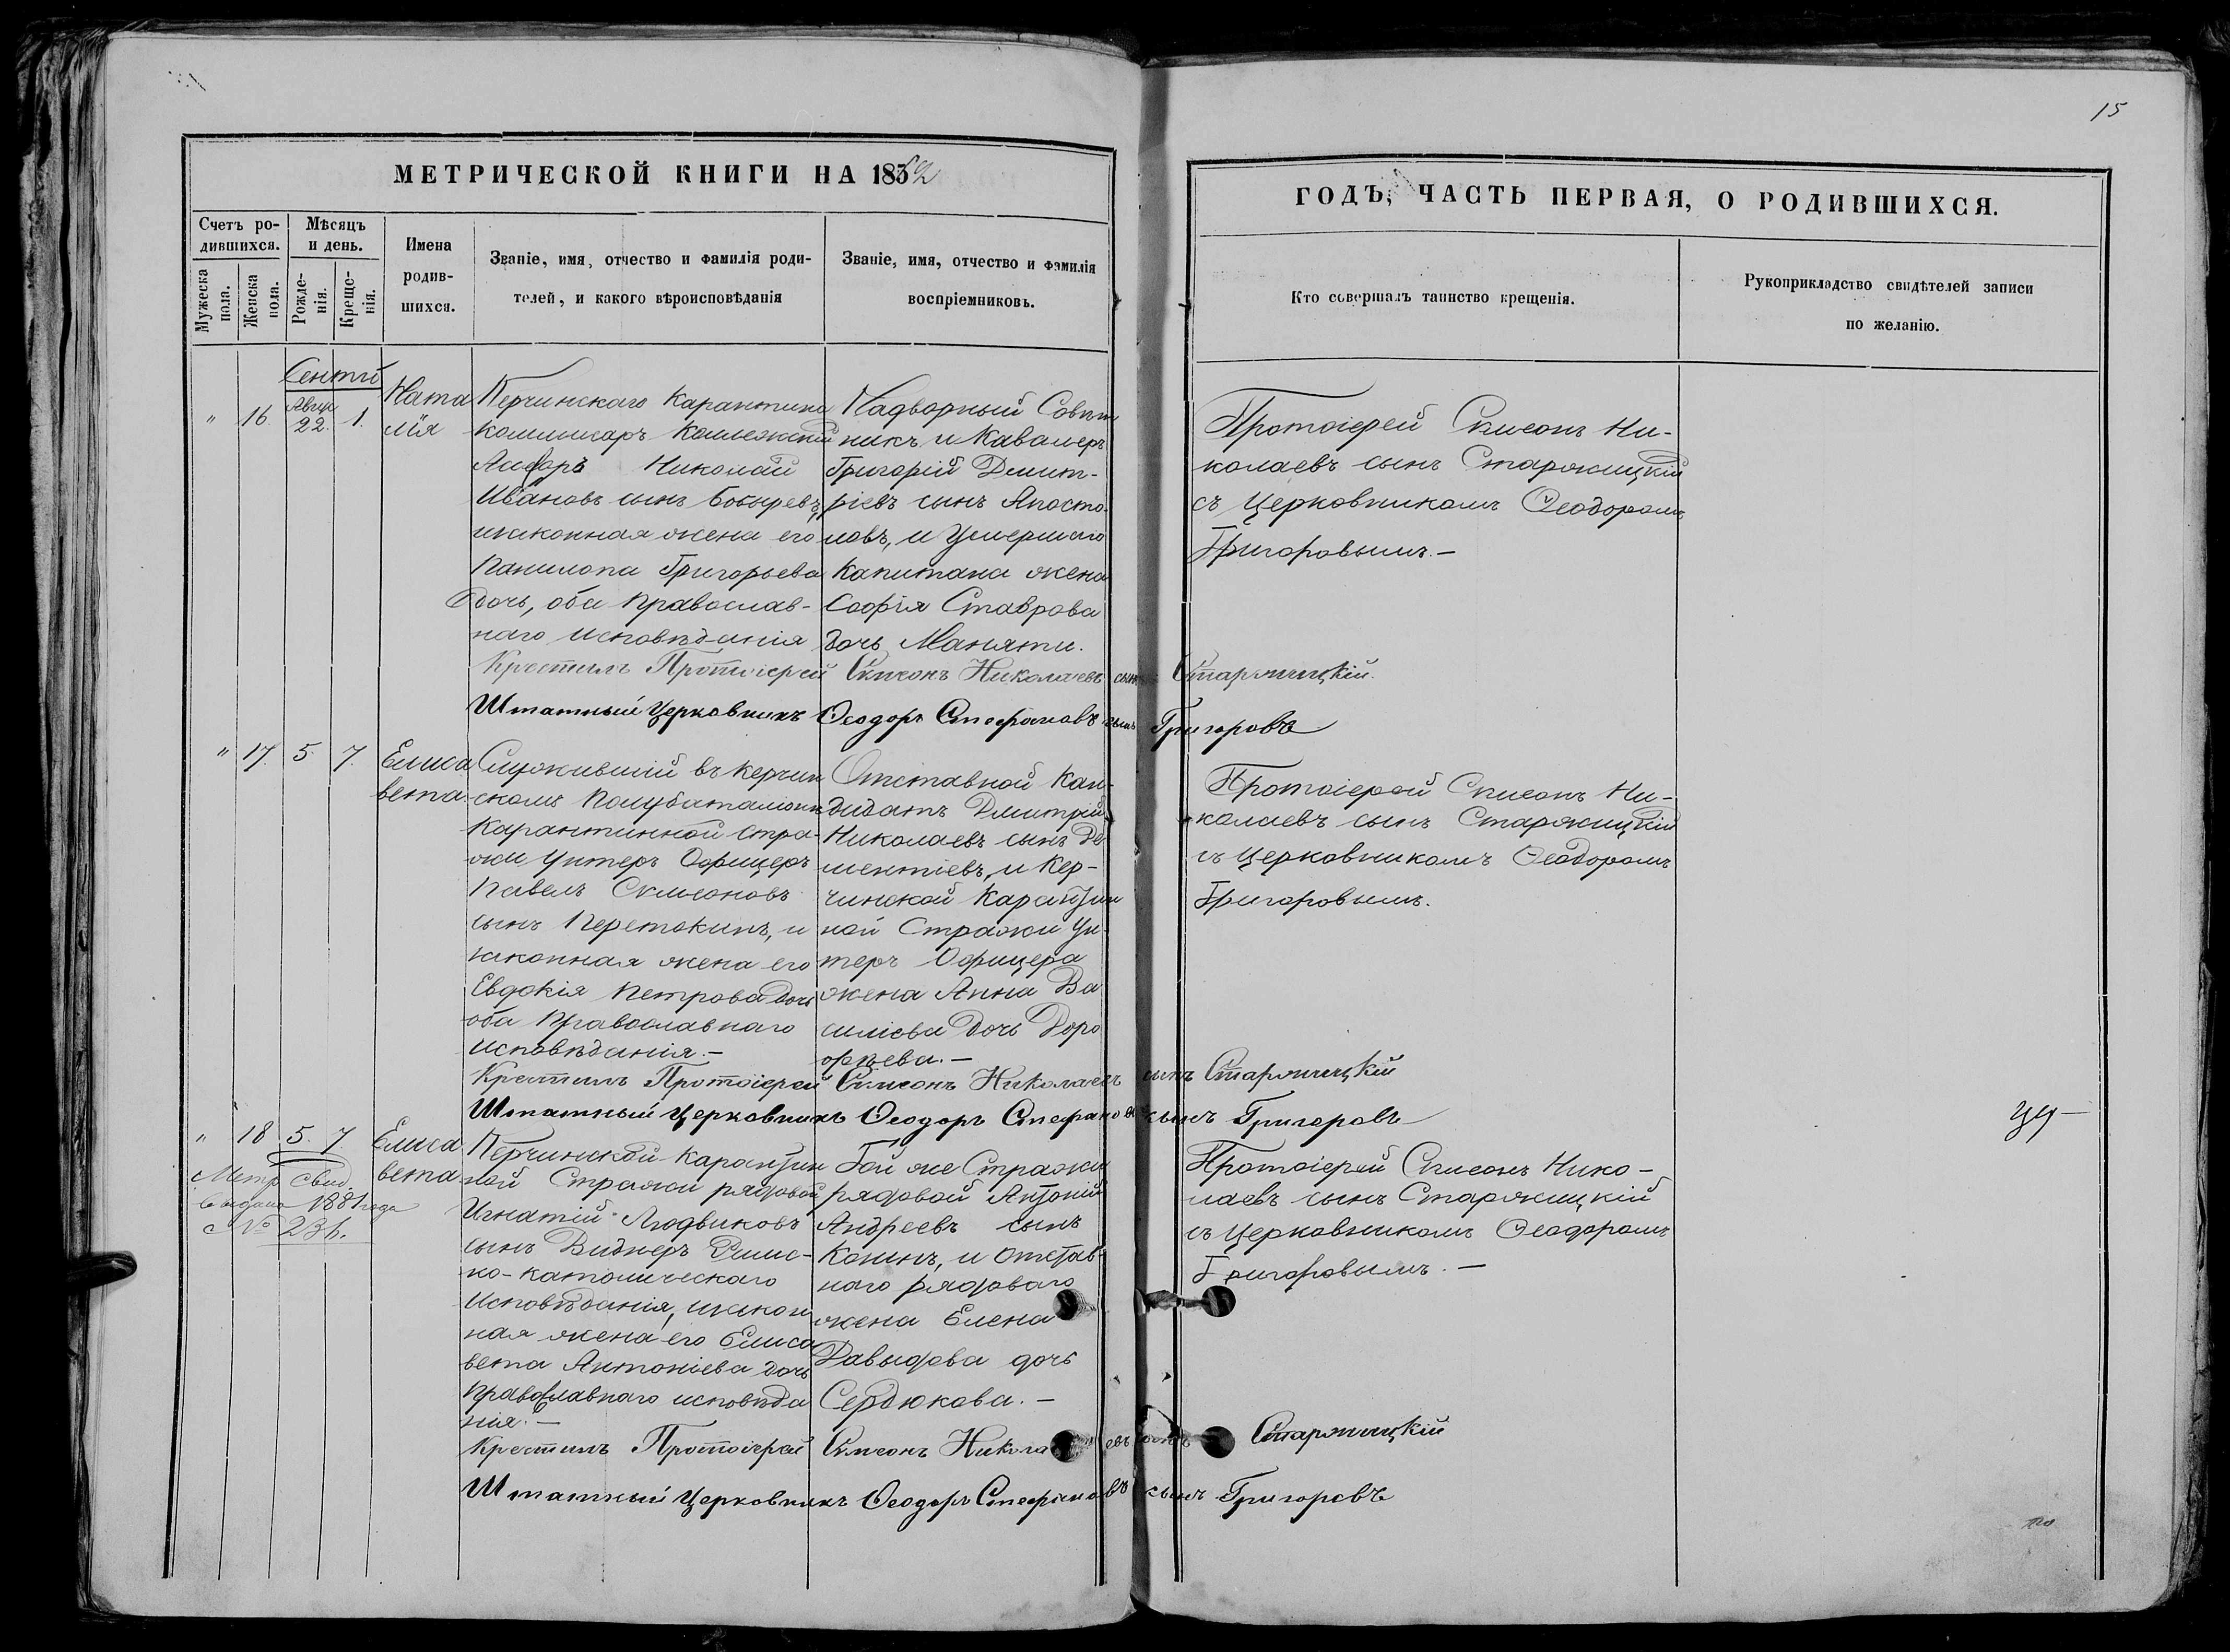 15
МЕТРИЧЕСКОЙ КНИГИ НА 1852
ГОДЪ, ЧАСТЬ ПЕРВАЯ, О РОДИВШИХСЯ.
Счетъ ро-
дившихся.
Мужеска
пола.
Женска
пола.
Мѣсяцъ
и день.
Рожде-
нія.
Креще-
нія.
Имена
родив-
шихся.
Званіе, имя, отчество и фамилія роди-
телей, и какого вѣроисповѣданія
Званіе, имя, отчество и фамилія
воспріемниковъ.
Кто совершалъ таинство крещенія.
Рукоприкладство свидѣтелей записи
по желанію.
Сентяб
" 16. Авгу 22. 1.
Ната
лія
Керчинскаго Карантина
коммисаръ Коллежскій
Николай
Ивановъ сынъ Бобыревъ,
и законная жена его
Панилопа Григорьева
дочь, оба Православ-
наго исповѣданія
Надворный Совѣт
никъ и Кавалеръ
Григорій Дмит-
ріевъ сынъ Апосто-
ловъ, и Умершаго
Капитана жена
Софія Ставрова
дочь Маняти.
Протоіерей Сѵмеонъ Ни-
колаевъ сынъ Старжицкій
съ Церковникомъ Ѳеодоромъ
Григоровымъ.—
Крестилъ Протоіерей Сѵмеонъ Николаевъ сынъ Старжицкій.
Штатный Церковникъ Ѳеодоръ Стефановъ сынъ Григоровъ
" 17. 5. 7.
Елиса
вета.
Служившій въ Керчин
скомъ Полубаталіонѣ
Карантинной Стра-
жи Унтеръ Офицеръ
Павелъ Сѵмеоновъ
сынъ Перетокинъ, и
законная жена его
Евдокія Петрова дочь
оба Православнаго
исповѣданія.—
Отставной Кан-
дидатъ Дмитрій
Николаевъ сынъ Де
ментіевъ, и Кер-
чинской Карантин
ной Стражи Ун-
теръ Офицера
жена Анна Ва
силіева дочь Доро
фѣева.—
Протоіерей Сѵмеонъ Ни-
колаевъ сынъ Старжицкій
съ Церковникомъ Ѳеодоромъ
Григоровымъ.
Крестилъ Протоіерей Сѵмеонъ Николаевъ сынъ Старжицкій
Штатный Церковникъ Ѳеодоръ Стефановъ сынъ Григоровъ
" 18 5. 7.
Метр. Свид.
выдано 1881 года
№ 236.
Елиса
вета
Керчинской Карантин
ной Стражи рядовой
Игнатій Людвиковъ
сынъ Виднеръ Римс-
ко-католическаго
Исповѣданія, и закон
ная жена его Елиса
вета Антоніева дочь
Православнаго исповѣда
нія.—
Той же Стражи
рядовой Антоній
Андреевъ сынъ
Конинъ, и отстав-
наго рядоваго
жена Елена
Давыдова дочь
Сердюкова.—
Протоіерей Сѵмеонъ Нико-
лаевъ сынъ Старжицкій
съ Церковникомъ Ѳеодоромъ
Григоровымъ.—
Крестилъ Протоіерей Сѵмеонъ Николаевъ сынъ Старжицкій
Штатный Церковникъ Ѳеодоръ Стефановъ сынъ Григоровъ